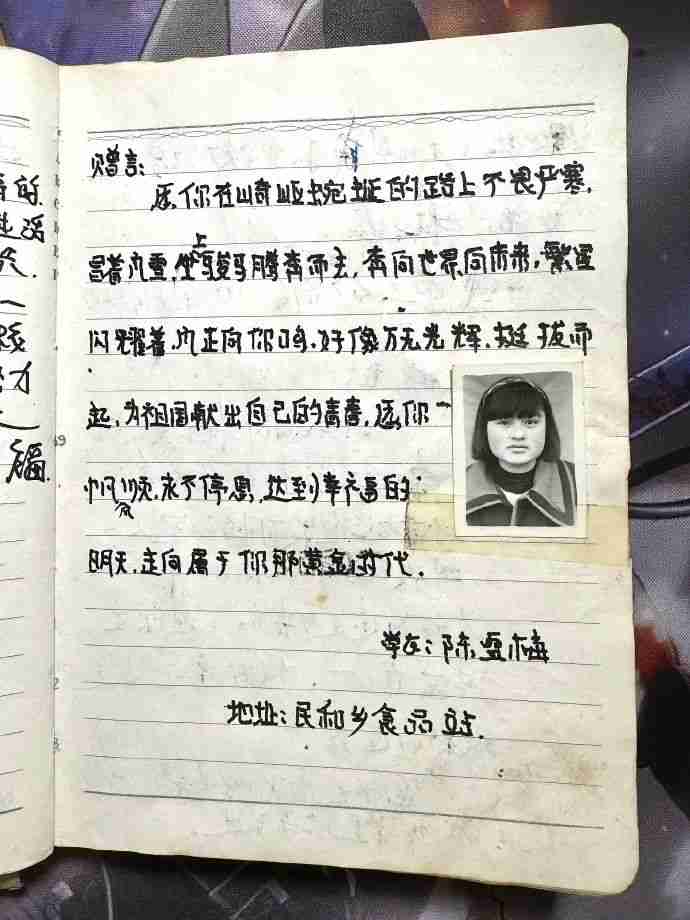 的
一
力
福
赠言:
愿你在崎岖蜿蜒的路上不畏严寒,
冒着风雪,坐上骏马腾奔而去,奔向世界,向未来,繁星
闪耀着,它正向你鸣,好像万无光辉,挺拔而
起,为祖国献出自己的青春,愿你一
帆风顺,永不停息,达到幸福的
明天,走向属于你那黄金时代.
学友:陈雪梅
地址:民和乡食品站.